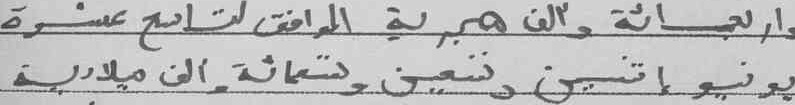 وأربعمائة وألف هجرية الموافق لتاسع عشرة
يونيو إثنين وتسعين وتسعمائة وألف ميلادية